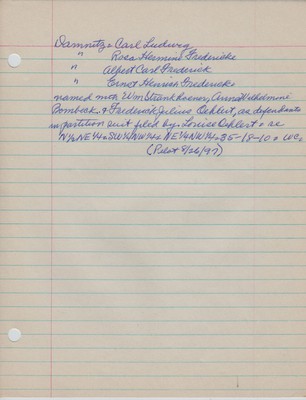 Damnitz, Carl Ludwig
" Rosa Hermine Fredericke
" Albert Carl Frederick
" Ernst Heinrich Frederick,
named + Wm Strunk
Bombeck, & Frederick Julius Oehlert, as defendants
in partition suit filed by Louise Oehlert, re
N½NE¼ & SW¼NW¼ & NE¼NW¼, 35-18-10,
(Pilot 8/26/97)